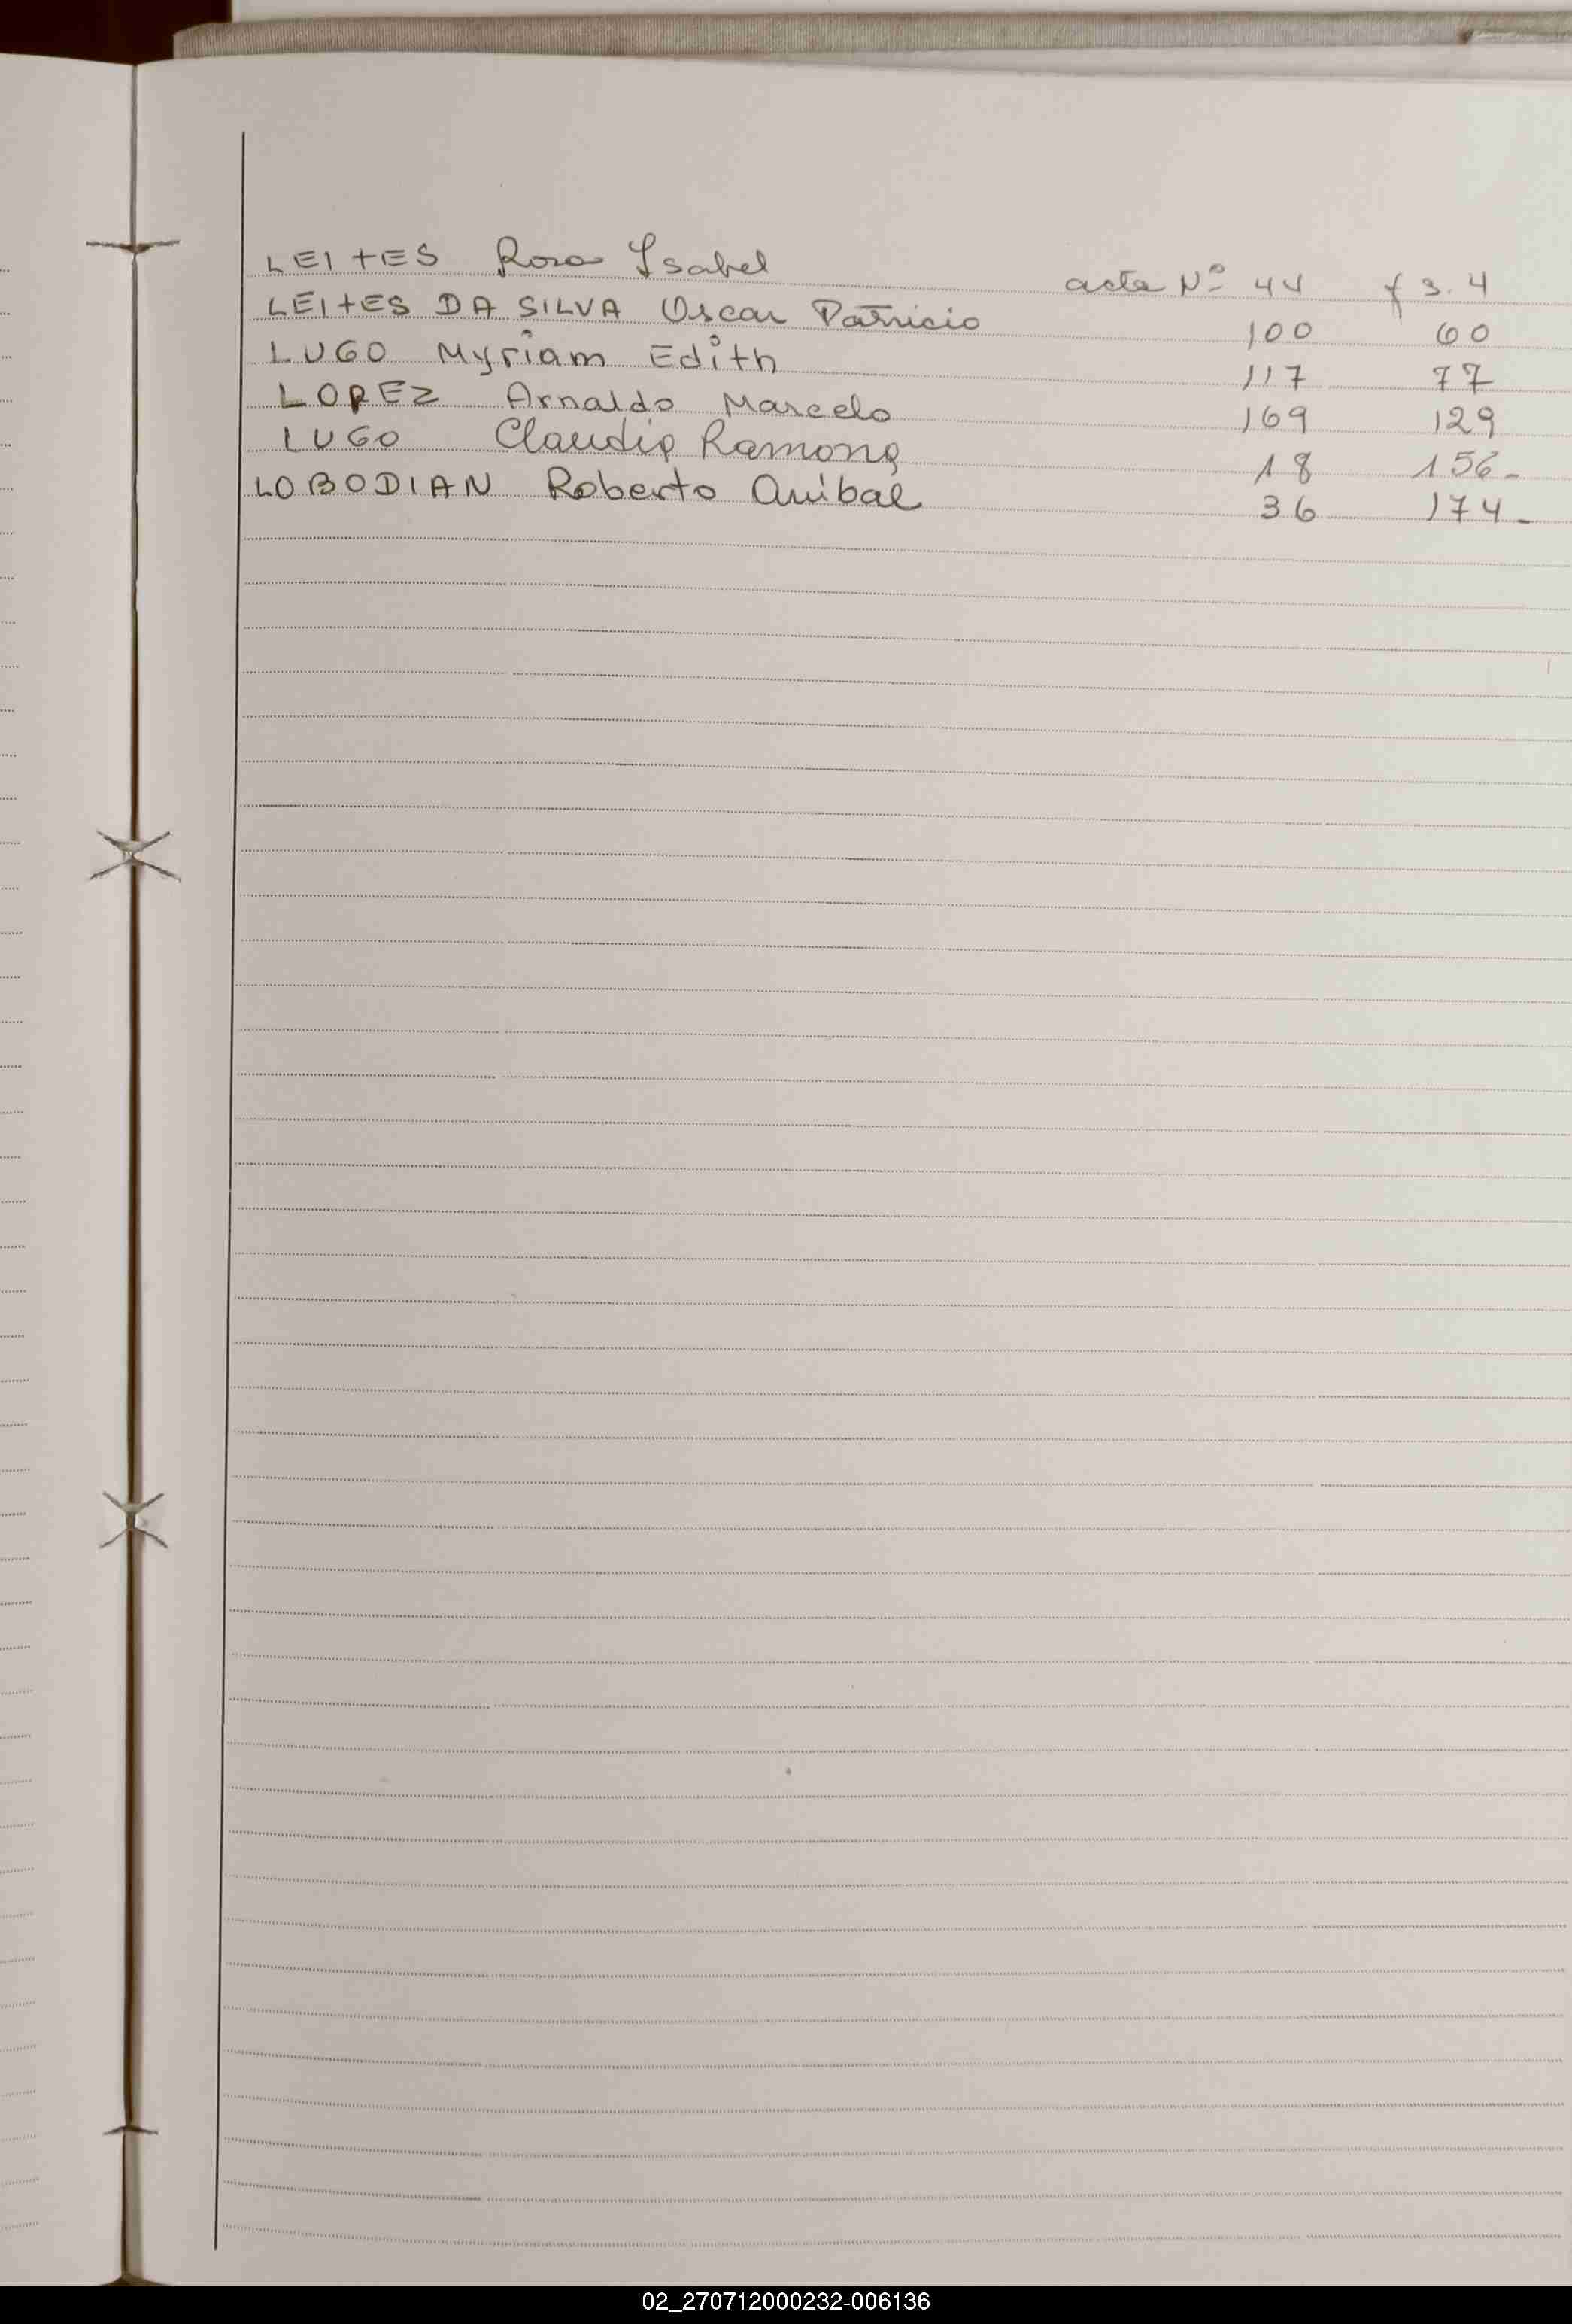 LEITES Rosa Ysabel acta Nº 44 fs. 4
LEITES DA SILVA Oscar Patricio 100 60
LUGO Myriam Edith 117 77
LOPEZ Arnaldo Marcelo 169 129
LUGO Claudia Ramona 18 156-
LOBODIAN Roberto Anibal 36 174-
02_270712000232-006136